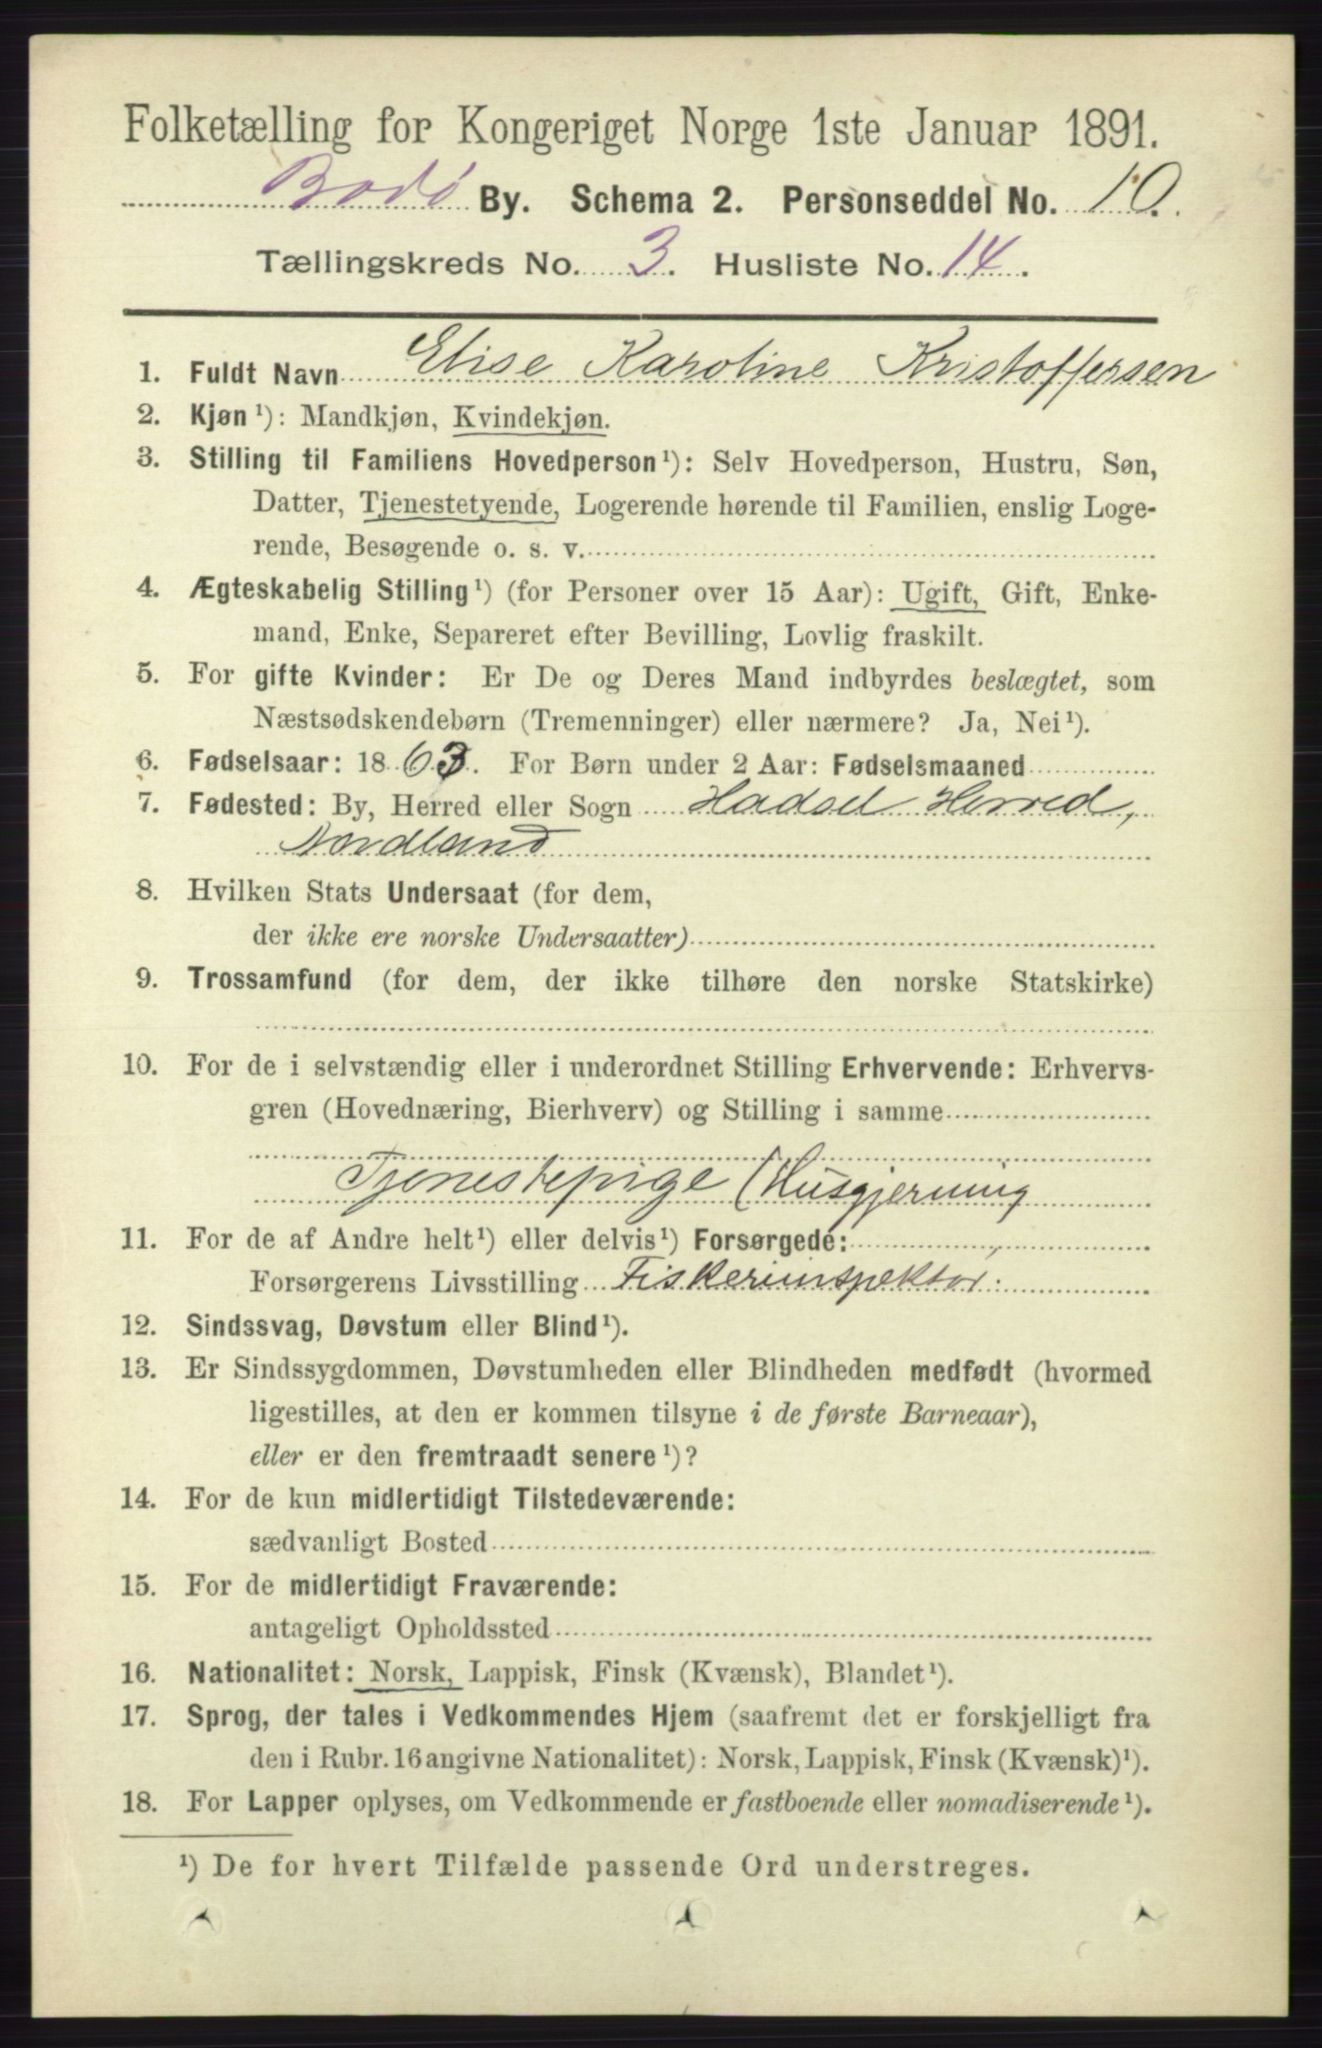 Folketælling for Kongeriget Norge 1ste Januar 1891.
Bodö By. Schema 2. Personseddel No. 10.
Tællingskreds No. 3. Husliste No. 14.
1. Fuldt Navn Elise Karoline Kristoffersen
2. Kjøn¹): Mandkjøn, Kvindekjøn.
3. Stilling til Familiens Hovedperson¹): Selv Hovedperson, Hustru, Søn,
Datter, Tjenestetyende, Logerende hørende til Familien, enslig Loge-
rende, Besøgende o. s. v.
4. Ægteskabelig Stilling¹) (for Personer over 15 Aar): Ugift, Gift, Enke-
mand, Enke, Separeret efter Bevilling, Lovlig fraskilt.
5. For gifte Kvinder: Er De og Deres Mand indbyrdes beslægtet, som
Næstsødskendebørn (Tremenninger) eller nærmere? Ja, Nei¹).
6. Fødselsaar: 1863. For Børn under 2 Aar: Fødselsmaaned
7. Fødested: By, Herred eller Sogn Hadsel Herred,
Nordland
8. Hvilken Stats Undersaat (for dem,
der ikke ere norske Undersaatter)
9. Trossamfund (for dem, der ikke tilhøre den norske Statskirke)
10. For de i selvstændig eller i underordnet Stilling Erhvervende: Erhvervs-
gren (Hovednæring, Bierhverv) og Stilling i samme
Tjenestepige (Husgjerning
11. For de af Andre helt¹) eller delvis¹) Forsørgede:
Forsørgerens Livsstilling Fiskeriinspektör.
12. Sindssvag, Døvstum eller Blind¹).
13. Er Sindssygdommen, Døvstumheden eller Blindheden medfødt (hvormed
ligestilles, at den er kommen tilsyne i de første Barneaar),
eller er den fremtraadt senere¹)?
14. For de kun midlertidigt Tilstedeværende:
sædvanligt Bosted
15. For de midlertidigt Fraværende:
antageligt Opholdssted
16. Nationalitet: Norsk, Lappisk, Finsk (Kvænsk), Blandet¹).
17. Sprog, der tales i Vedkommendes Hjem (saafremt det er forskjelligt fra
den i Rubr. 16 angivne Nationalitet): Norsk, Lappisk, Finsk (Kvænsk)¹).
18. For Lapper oplyses, om Vedkommende er fastboende eller nomadiserende¹).
¹) De for hvert Tilfælde passende Ord understreges.